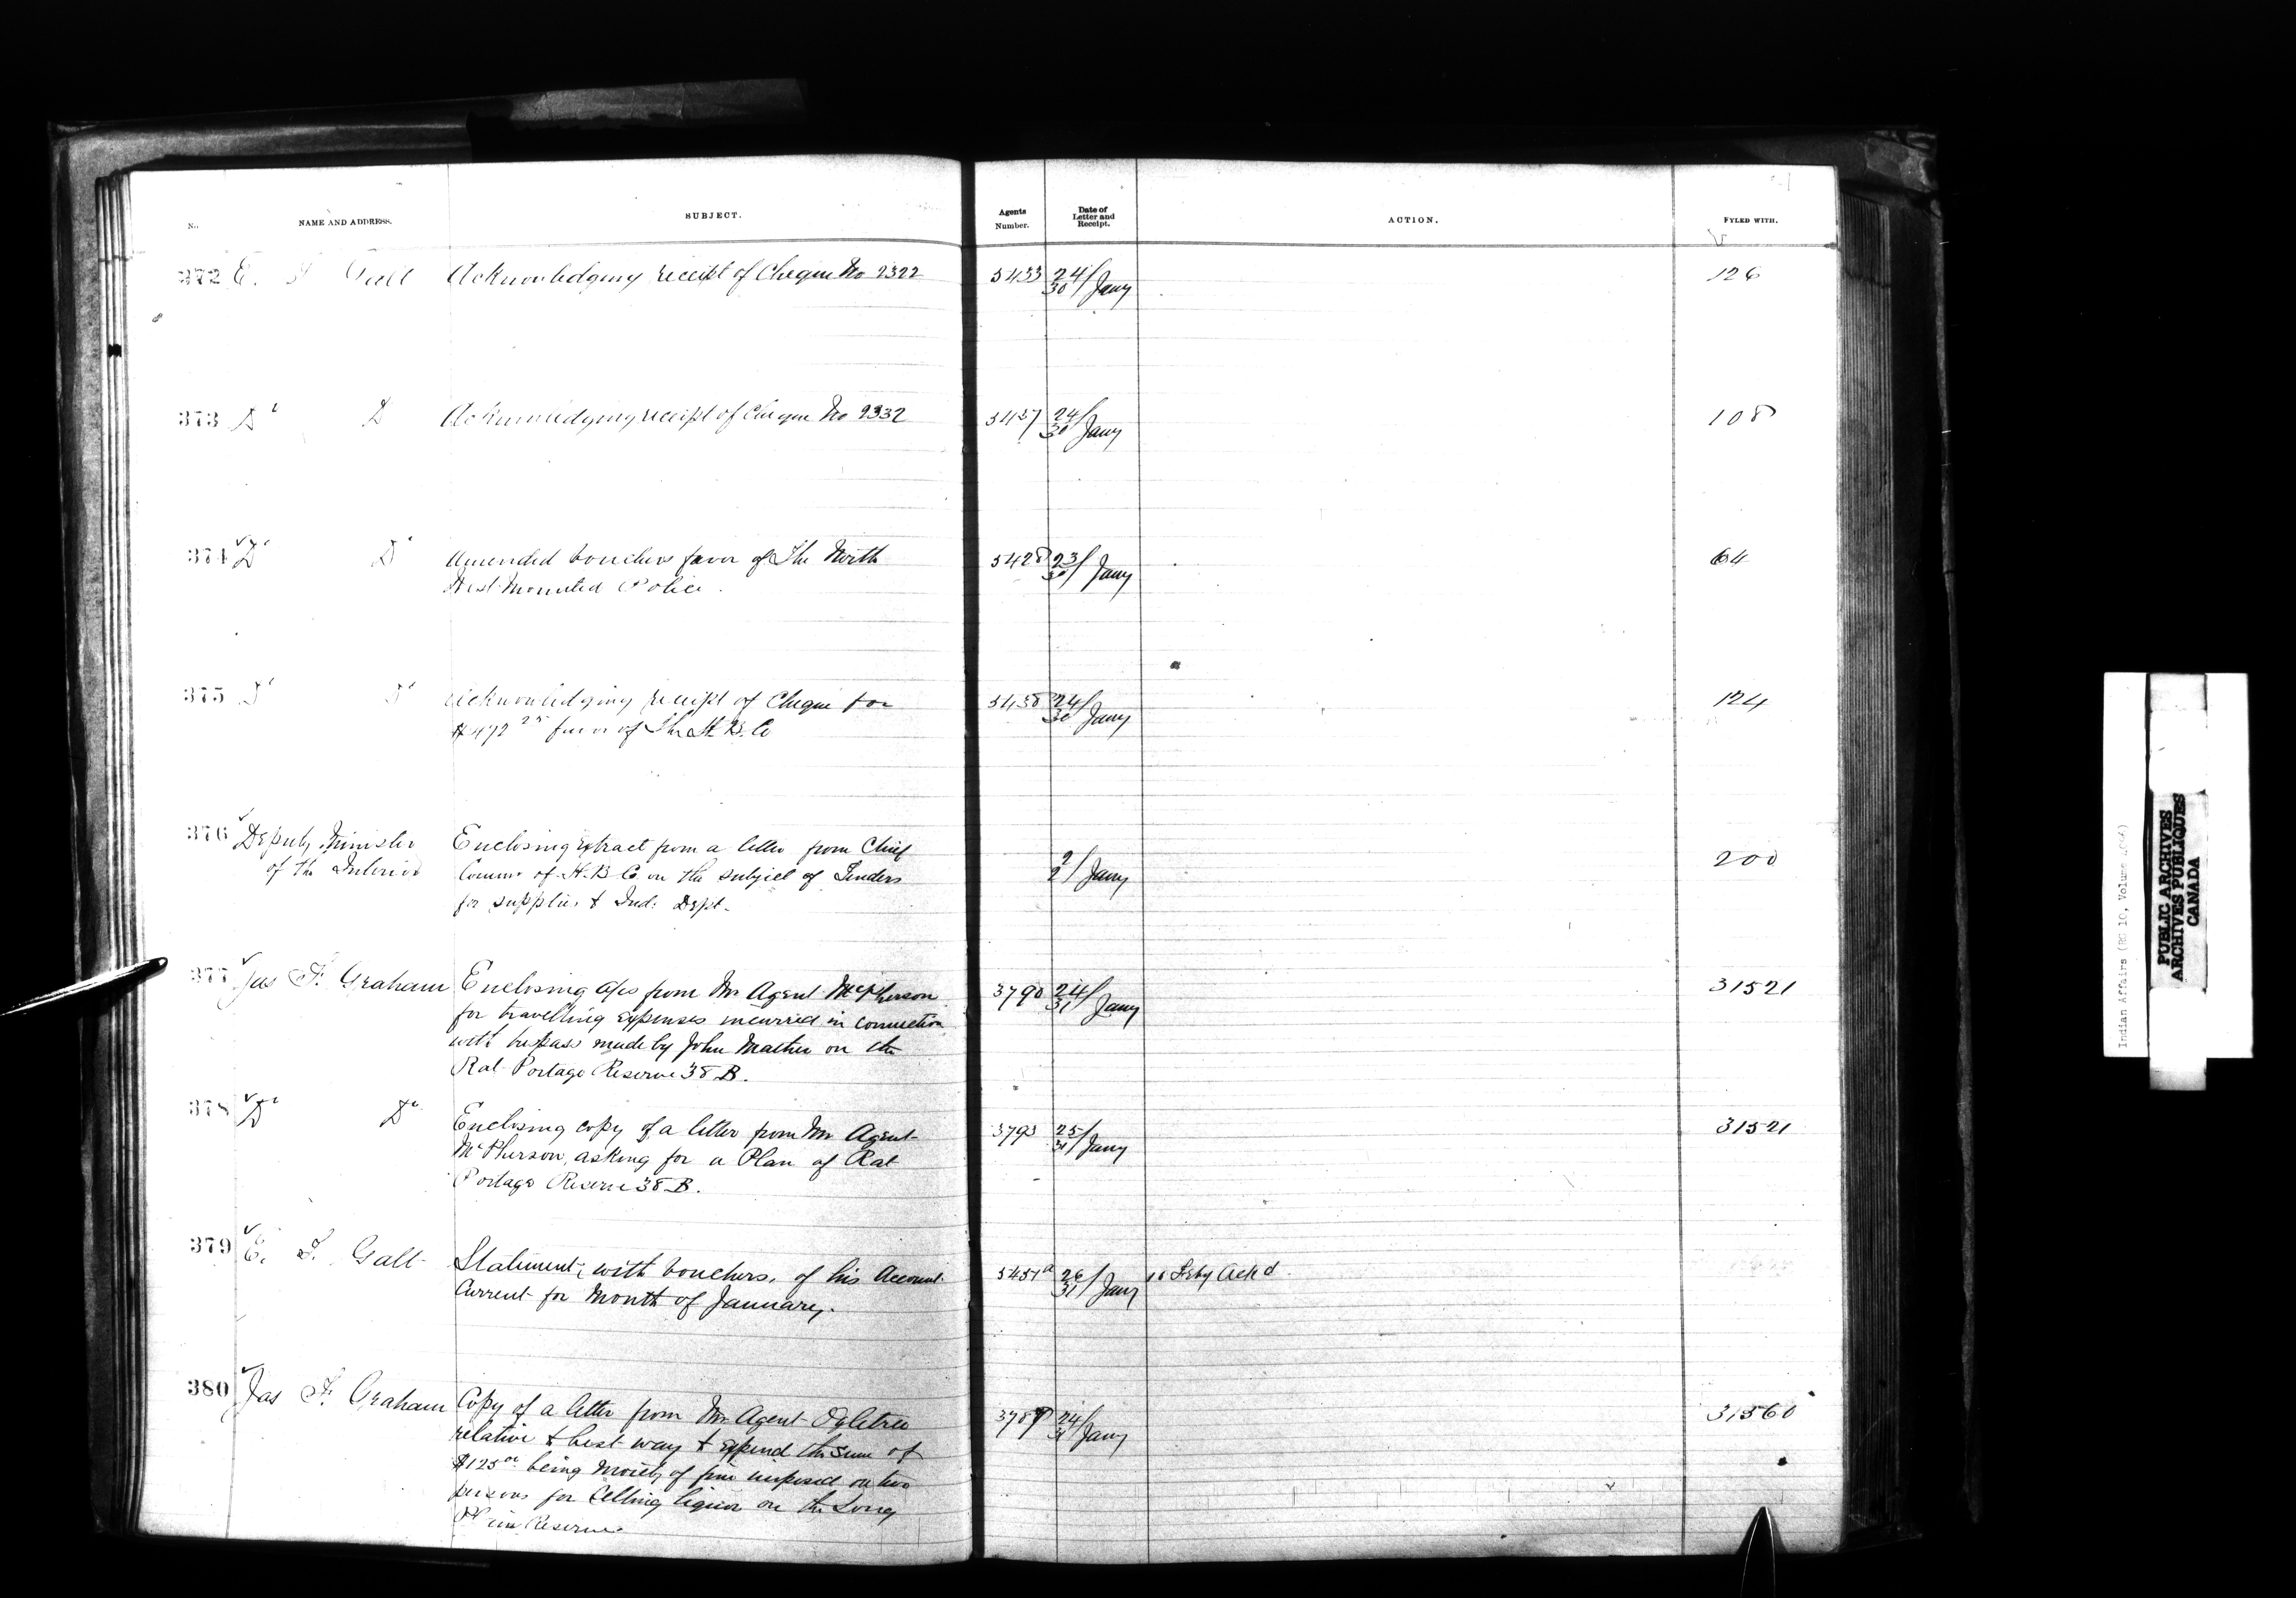 No. NAME AND ADDRESS. SUBJECT. Agents Number. Date of Letter and Receipt. ACTION. FYLED WITH.
372 E. T. Galt Acknowledging receipt of Cheque No 2322 5433 24/30 Jany 126
373 Do Do Acknowledging receipt of Cheque No 2332 5437 24/30 Jany 108
374 Do Do Amended vouchers favor of The North 5428 23/30 Jany 64
West Mounted Police.
375 Do Do Acknowledging receipt of Cheque for 5438 24/30 Jany 124
$472 25 favor of The H. B. Co
376 Deputy Minister Enclosing Extract from a letter from Chief
of the Interior Commr of H. B Co on the subject of Tenders 2/2 Jany 200
for supplies to Ind: Dept.
377 Jas F. Graham Enclosing a/cs from Mr Agent McPherson 3790 24/31 Jany 31521
for travelling expenses incurred in connection
with trespass made by John Mather on the
Rat Portage Reserve 38 B.
378 Do Do Enclosing copy of a letter from Mr Agent 3793 25/31 Jany 31521
McPherson, asking for a Plan of Rat
Portage Reserve 38 B.
379 E. T. Galt Statement, with vouchers, of his Account 5451a 26/31 Jany 16 Feby Ackd
Current for Month of January.
380 Jas F. Graham Copy of a letter from Mr Agent Ogletree 3789 24/31 Jany 31560
relative to best way to expend the sum of
$125 00 being Moiety of fine imposed on two
persons for selling liquor on the Long
Plain Reserve.
Indian Affairs (RG 10, Volume
PUBLIC ARCHIVES
ARCHIVES PUBLIQUES
CANADA